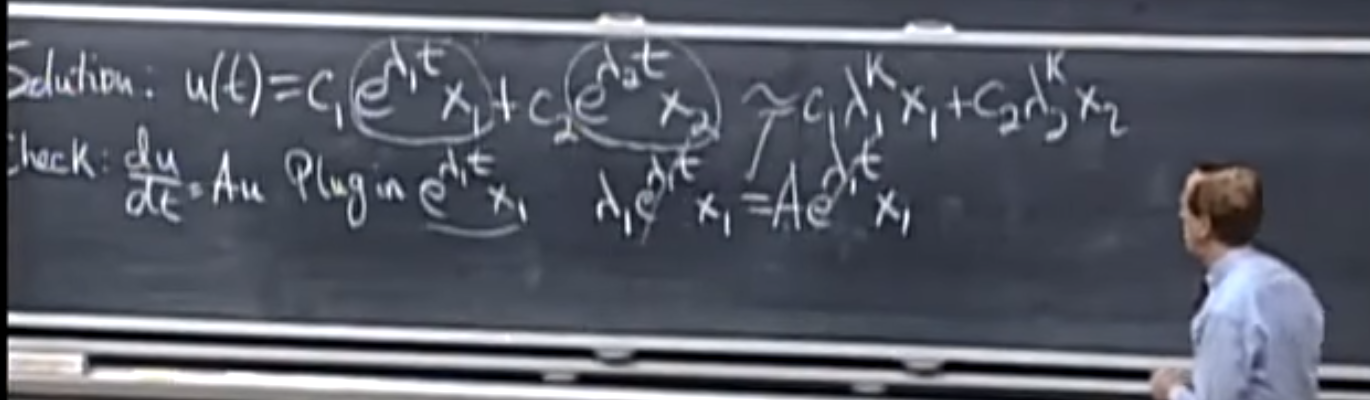 Solution: u(t) = c₁ e^{λ₁t} x₁ + c₂ e^{λ₂t} x₂ ~ c₁ λ₁^k x₁ + c₂ λ₂^k x₂
Check: du/dt = Au Plug in e^{λ₁t} x₁ λ₁ e^{λ₁t} x₁ = A e^{λ₁t} x₁